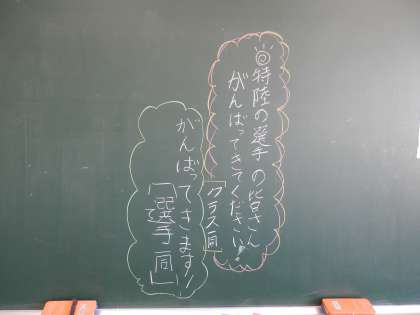 特陸の選手の皆さん
がんばってきてください!
クラス一同
がんばってきます!
選手一同